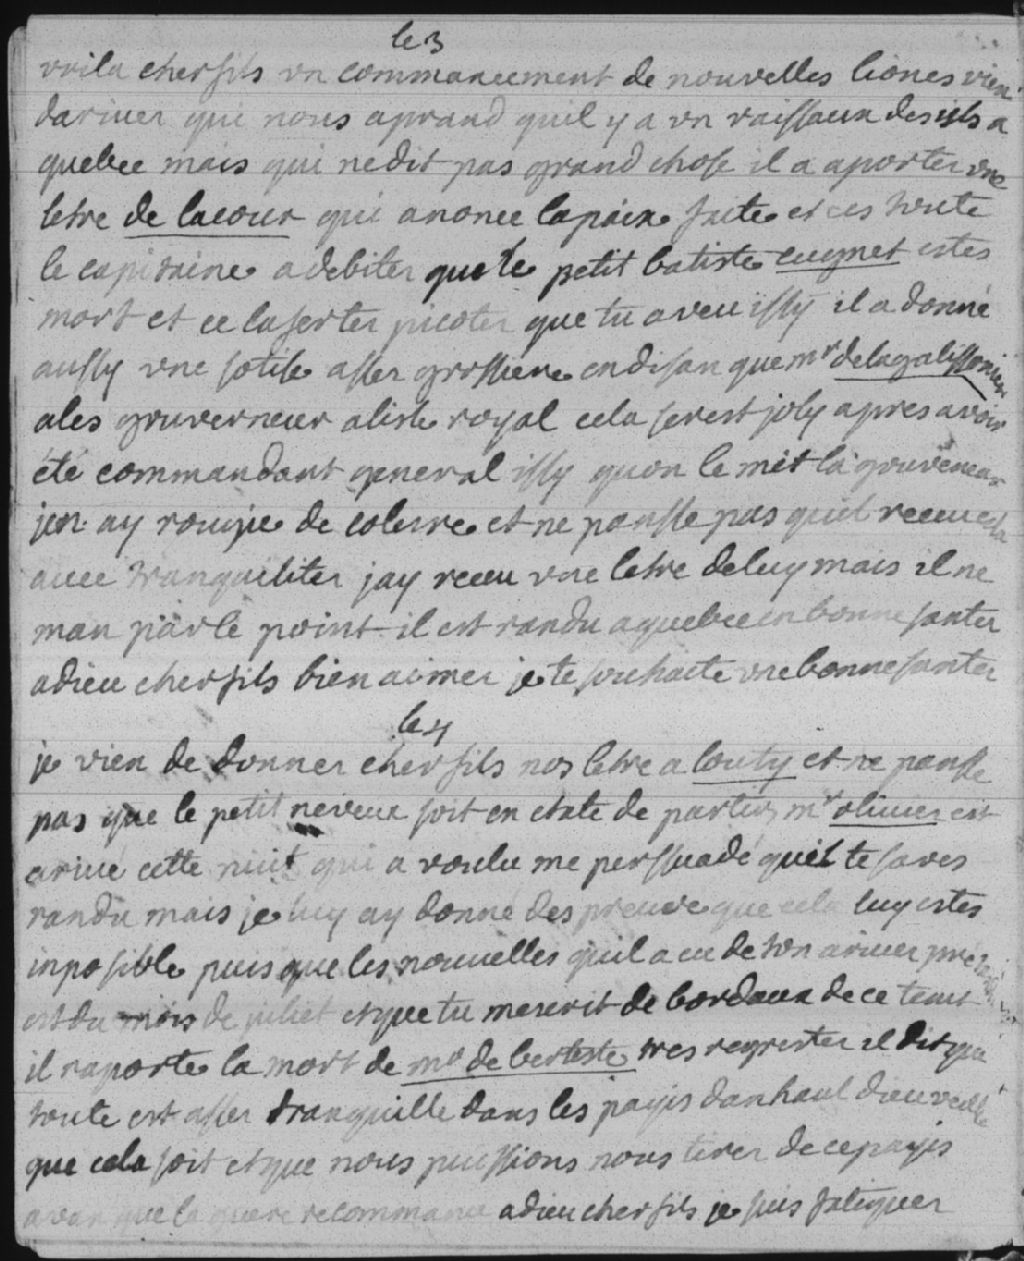 le 3
voila cher fils vn commancement de nouvelles liones vien
dariver qui nous aprand quil y a vn vaissaux des isls a
quebec mais qui ne dit pas grand chose il a aporter vne
letre de lacour qui anonce lapaix faite et ces toute
le capitaine a debiter que le petit batiste cugnet estes
mort et ce laserter picoter que tu a veu issy il a donné
aussy vne sotise asser grossiere en disan que mr delagalissonier
ales gouverneur alisle royal cela serest joly apres avoir
été commandant general issy quon le mit la gouverneur
jen ay rougie de colerre et ne pansse pas quil receue cela
avec tranquiliter jay receu vne letre deluy mais il ne
man parle point il est randu aquebec en bonne santer
adieu cher fils bien aimer je te souhaite vne bonne santer
le 4
je vien de donner cher fils nos letre a louty et ne pansse
pas que le petit neveux soit en etate de partir mr olivier est
arive cette nuit qui a voulu me perssuadé quil te saves
randu mais je luy ay donné des preuve que cela luy estes
inposible puis que les nouvelles quil a eu de ton ariver
est du mois de juliet et que tu mescrit de bordaux de ce temt
il raporte la mort de mr de berteste tres regrester il dit que
toute est asser tranquille dans les payis danhaut dieu veille
que cela soit et que nous puissions nous tirer de ce payis
avan que la guere recommance adieu cher fils je suis fatiguer